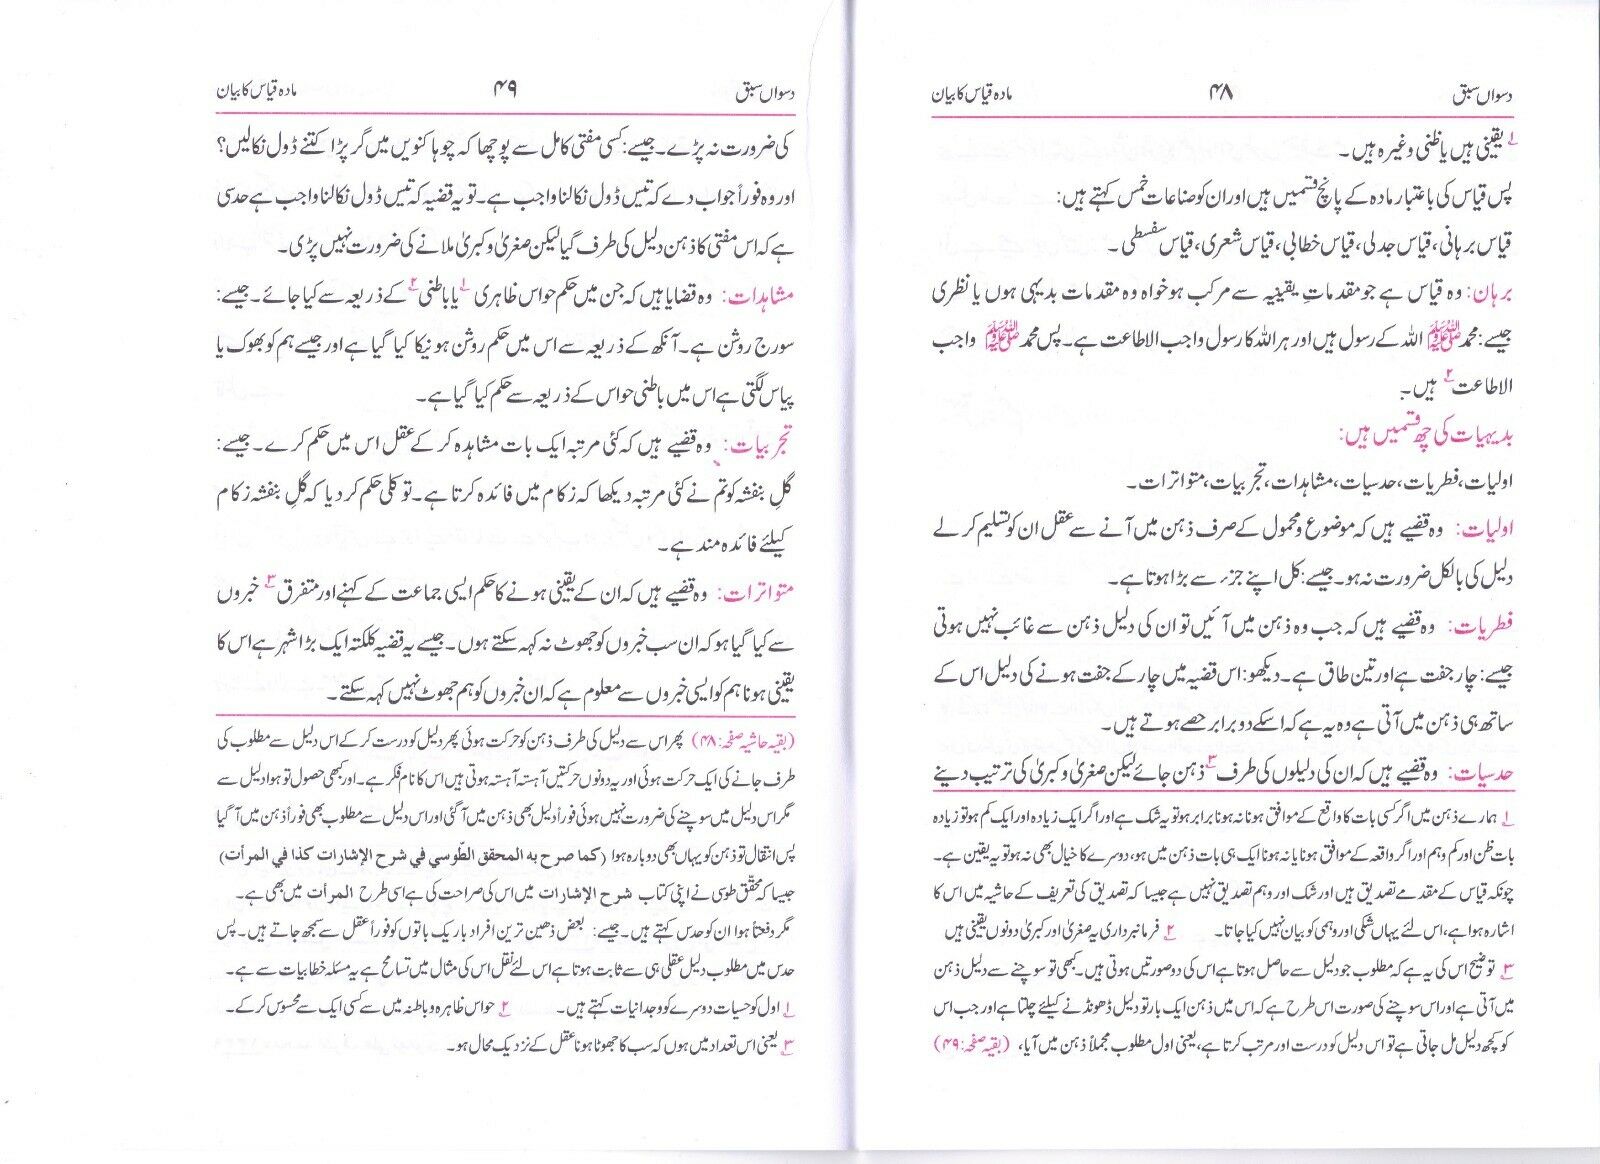 دسواں سبق ۴۸ مادہ قیاس کا بیان
۱ یقینی ہیں یا ظنی وغیرہ ہیں۔
پس قیاس کی باعتبار مادہ کے پانچ قسمیں ہیں اور ان کو صناعات خمس کہتے ہیں:
قیاس برہانی، قیاس جدلی، قیاس خطابی، قیاس شعری، قیاس سفسطی۔
برہان: وہ قیاس ہے جو مقدماتِ یقینیہ سے مرکب ہو خواہ وہ مقدمات بدیہی ہوں یا نظری
جیسے: محمد ﷺ اللہ کے رسول ہیں اور ہر اللہ کا رسول واجب الاطاعت ہے۔ پس محمد ﷺ واجب
الاطاعت ۲ ہیں۔
بدیہیات کی چھ قسمیں ہیں:
اولیات، فطریات، حدسیات، مشاہدات، تجربیات، متواترات۔
اولیات: وہ قضیے ہیں کہ موضوع ومحمول کے صرف ذہن میں آنے سے عقل ان کو تسلیم کر لے
دلیل کی بالکل ضرورت نہ ہو۔ جیسے: کل اپنے جزء سے بڑا ہوتا ہے۔
فطریات: وہ قضیے ہیں کہ جب وہ ذہن میں آئیں تو ان کی دلیل ذہن سے غائب نہیں ہوتی
جیسے: چار جفت ہے اور تین طاق ہے۔ دیکھو: اس قضیہ میں چار کے جفت ہونے کی دلیل اس کے
ساتھ ہی ذہن میں آتی ہے وہ یہ ہے کہ اسکے دو برابر حصے ہوتے ہیں۔
حدسیات: وہ قضیے ہیں کہ ان کی دلیلوں کی طرف ۳ ذہن جائے لیکن صغریٰ وکبریٰ کی ترتیب دینے
۱ ہمارے ذہن میں اگر کسی بات کا واقع کے موافق ہونا نہ ہونا برابر ہو تو یہ شک ہے اور اگر ایک زیادہ اور ایک کم ہو تو زیادہ
بات ظن اور کم وہم اور اگر واقعہ کے موافق ہونا یا نہ ہونا ایک ہی بات ذہن میں ہو، دوسرے کا خیال بھی نہ ہو تو یہ یقین ہے۔
چونکہ قیاس کے مقدمے تصدیق ہیں اور شک اور وہم تصدیق نہیں ہے جیسا کہ تصدیق کی تعریف کے حاشیہ میں اس کا
اشارہ ہوا ہے، اس لئے یہاں شکی اور وہمی کو بیان نہیں کیا جاتا۔ ۲ فرمانبرداری یہ صغریٰ اور کبریٰ دونوں یقینی ہیں
۳ توضیح اس کی یہ ہے کہ مطلوب جو دلیل سے حاصل ہوتا ہے اس کی دو صورتیں ہوتی ہیں۔ کبھی تو سوچنے سے دلیل ذہن
میں آتی ہے اور اس سوچنے کی صورت اس طرح ہے کہ اس میں ذہن ایک بار تو دلیل ڈھونڈنے کیلئے چلتا ہے اور جب اس
کو کچھ دلیل مل جاتی ہے تو اس دلیل کو درست اور مرتب کرتا ہے، یعنی اول مطلوب مجملاً ذہن میں آیا، (بقیہ صفحہ: ۴۹)
دسواں سبق ۴۹ مادہ قیاس کا بیان
کی ضرورت نہ پڑے۔ جیسے: کسی مفتی کامل سے پوچھا کہ چوہا کنویں میں گر پڑا کتنے ڈول نکالیں؟
اور وہ فوراً جواب دے کہ تیس ڈول نکالنا واجب ہے۔ تو یہ قضیہ کہ تیس ڈول نکالنا واجب ہے حدسی
ہے کہ اس مفتی کا ذہن دلیل کی طرف گیا لیکن صغریٰ وکبریٰ ملانے کی ضرورت نہیں پڑی۔
مشاہدات: وہ قضایا ہیں کہ جن میں حکم حواس ظاہری ۱ یا باطنی ۲ کے ذریعہ سے کیا جائے۔ جیسے:
سورج روشن ہے۔ آنکھ کے ذریعہ سے اس میں حکم روشن ہونیکا کیا گیا ہے اور جیسے ہم کو بھوک یا
پیاس لگتی ہے اس میں باطنی حواس کے ذریعہ سے حکم کیا گیا ہے۔
تجربیات: وہ قضیے ہیں کہ کئی مرتبہ ایک بات مشاہدہ کر کے عقل اس میں حکم کرے۔ جیسے:
گلِ بنفشہ کو تم نے کئی مرتبہ دیکھا کہ زکام میں فائدہ کرتا ہے۔ تو کلی حکم کر دیا کہ گلِ بنفشہ زکام
کیلئے فائدہ مند ہے۔
متواترات: وہ قضیے ہیں کہ ان کے یقینی ہونے کا حکم ایسی جماعت کے کہنے اور متفرق ۳ خبروں
سے کیا گیا ہو کہ ان سب خبروں کو جھوٹ نہ کہہ سکتے ہوں۔ جیسے یہ قضیہ کلکتہ ایک بڑا شہر ہے اس کا
یقینی ہونا ہم کو ایسی خبروں سے معلوم ہے کہ ان خبروں کو ہم جھوٹ نہیں کہہ سکتے۔
(بقیہ حاشیہ صفحہ: ۴۸) پھر اس سے دلیل کی طرف ذہن کو حرکت ہوئی پھر دلیل کو درست کر کے اس دلیل سے مطلوب کی
طرف جانے کی ایک حرکت ہوئی اور یہ دونوں حرکتیں آہستہ آہستہ ہوتی ہیں اس کا نام فکر ہے۔ اور کبھی حصول تو ہوا دلیل سے
مگر اس دلیل میں سوچنے کی ضرورت نہیں ہوئی فوراً دلیل بھی ذہن میں آگئی اور اس دلیل سے مطلوب بھی فوراً ذہن میں آ گیا
پس انتقال تو ذہن کو یہاں بھی دوبارہ ہوا (کما صرح به المحقق الطّوسي في شرح الإشارات كذا في المرأت)
جیسا کہ محقّق طوسی نے اپنی کتاب شرح الإشارات میں اس کی صراحت کی ہے اسی طرح المرأت میں بھی ہے۔
مگر دفعتاً ہوا ان کو حدس کہتے ہیں۔ جیسے: بعض ذھین ترین افراد باریک باتوں کو فوراً عقل سے سمجھ جاتے ہیں۔ پس
حدس میں مطلوب دلیل عقلی ہی سے ثابت ہوتا ہے اس لئے نقل اس کی مثال میں تسامح ہے یہ مسئلہ خطابیات سے ہے۔
۱ اول کو حسیات دوسرے کو وجدانیات کہتے ہیں۔ ۲ حواس ظاہرہ وباطنہ میں سے کسی ایک سے محسوس کر کے۔
۳ یعنی اس تعداد میں ہوں کہ سب کا جھوٹا ہونا عقل کے نزدیک محال ہو۔